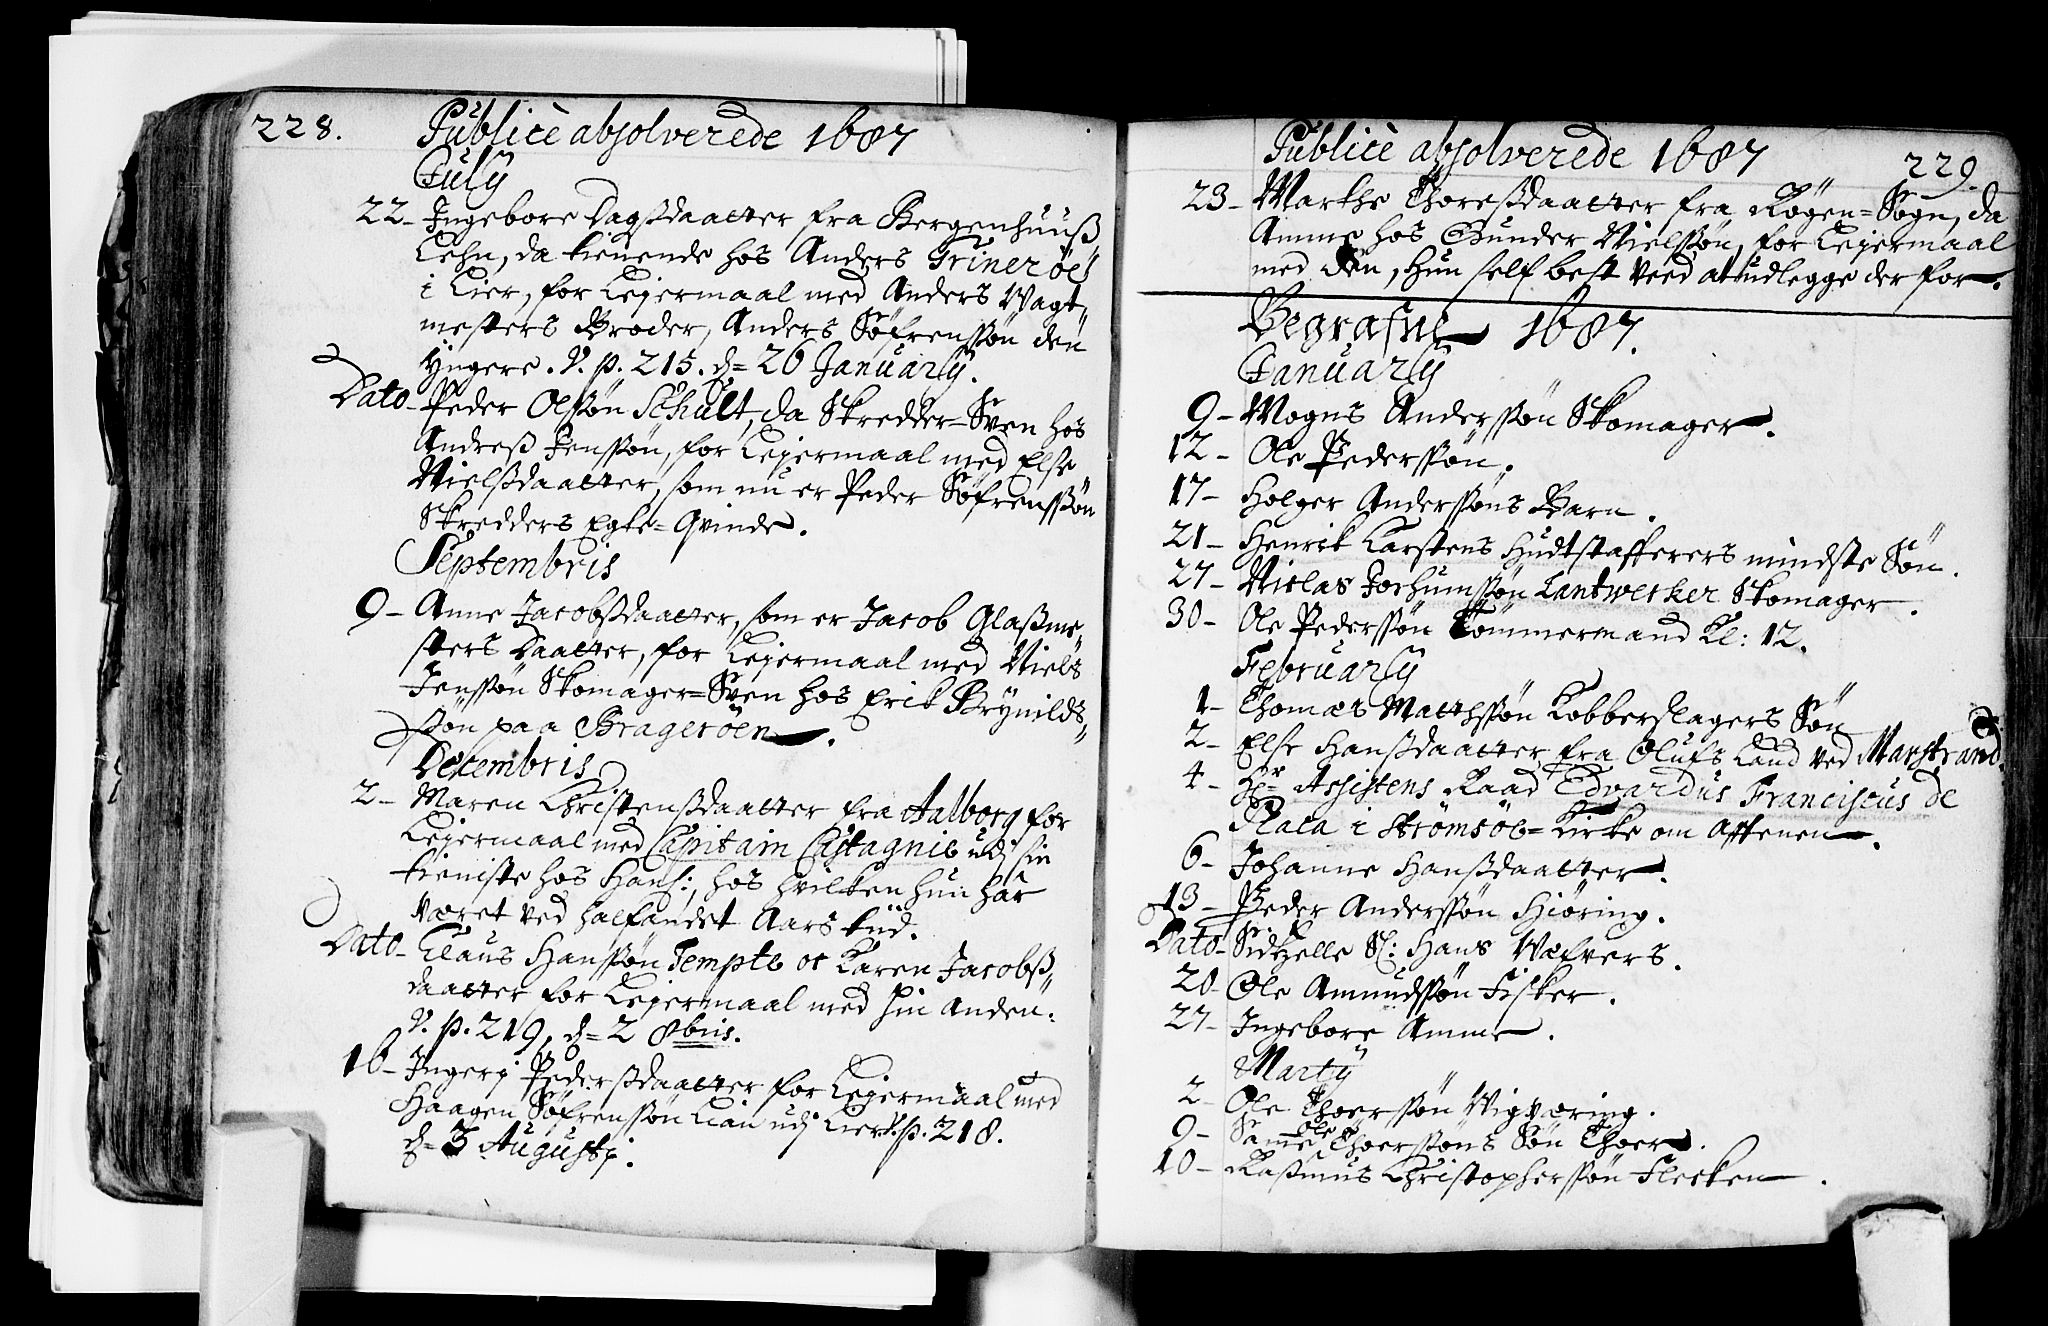 228. Publicè absolverede 1687
July
22– Ingebore Dagsdaatter fra Bergenhuuß
Lehn, da tienende hos Anders Grinerøe
i Lier, for Leiermaal med Anders Vagt,,
mesters Broder, Anders Søfrenssøn den
Yngere. V. p. 215. d= 26 January.
Dato– Peder Olssøn Schult, da Skredder=Sven hos
Andreß Jenssøn, for Leiermaal med Else
Nielsdaatter, som nu er Peder Søfrenssøn
Skredders Egte=Qvinde.
Septembris
9– Anne Jacobsdaatter, som er Jacob Glaßme,,
sters Daatter, for Leiermaal med Niels
Jenssøn Skomager=Sven hos Erick Brynilds,,
søn paa Bragerøen.
Decembris
2– Maren Christensdaatter fra Aalborg for
Leiermaal med Capitain Castagnie udj sin
tieniste hos Hans:, hos hvilken hun har
været ved halfandet Aars tiid.
Dato– Claus Hanssøn Tempte oc Karen Jacobß,,
daatter for Leiermaal med hin anden.
V. p. 219, d= 2 8bris.
16– Ingerj Pedersdaatter for Leiermaal med
Haagen Søfrenssøn Lian udj Lier V. p. 218.
d= 3 Augustj.
Publicè absolverede 1687 229.
23– Marthe Thoresdaatter fra Røgen=Sogn, da
Amme hos Gunder Nielssøn, for Leiermaal
med den, Hun self best veed at udlegge der for.
Begrafne 1687.
January
9– Mogns Anderssøn Skomager.
12– Ole Pederssøn.
17– Holger Anderssøns Barn.
21– Henrik Karstens Hudtstafferers mindste Søn.
27– Niclas Jochumssøn Lantwerker Skomager.
30– Ole Pederssøn Tømmermand Kl: 12.
February
1– Thomas Matthssøn Kobberslagers Søn
2– Else Hansdaatter fra Olufs Land ved Marstrand.
4– Hr Assistens Raad Edvardus Franciscus de
Rala i Strømsøe=Kirke om Aftenen.
6– Johanne Hansdaatter.
13– Peder Anderssøn Hiøring.
Dato– Sidtzelle Sl: Hans Væfvers.
20– Ole Amundssøn Fisker.
27– Ingebore Amme.
Marty
2– Ole Thoerssøn Vigværing.
9– Samme Ole Thoerssøns Søn Thoer.
10– Raßmus Christopherssøn Flecken.